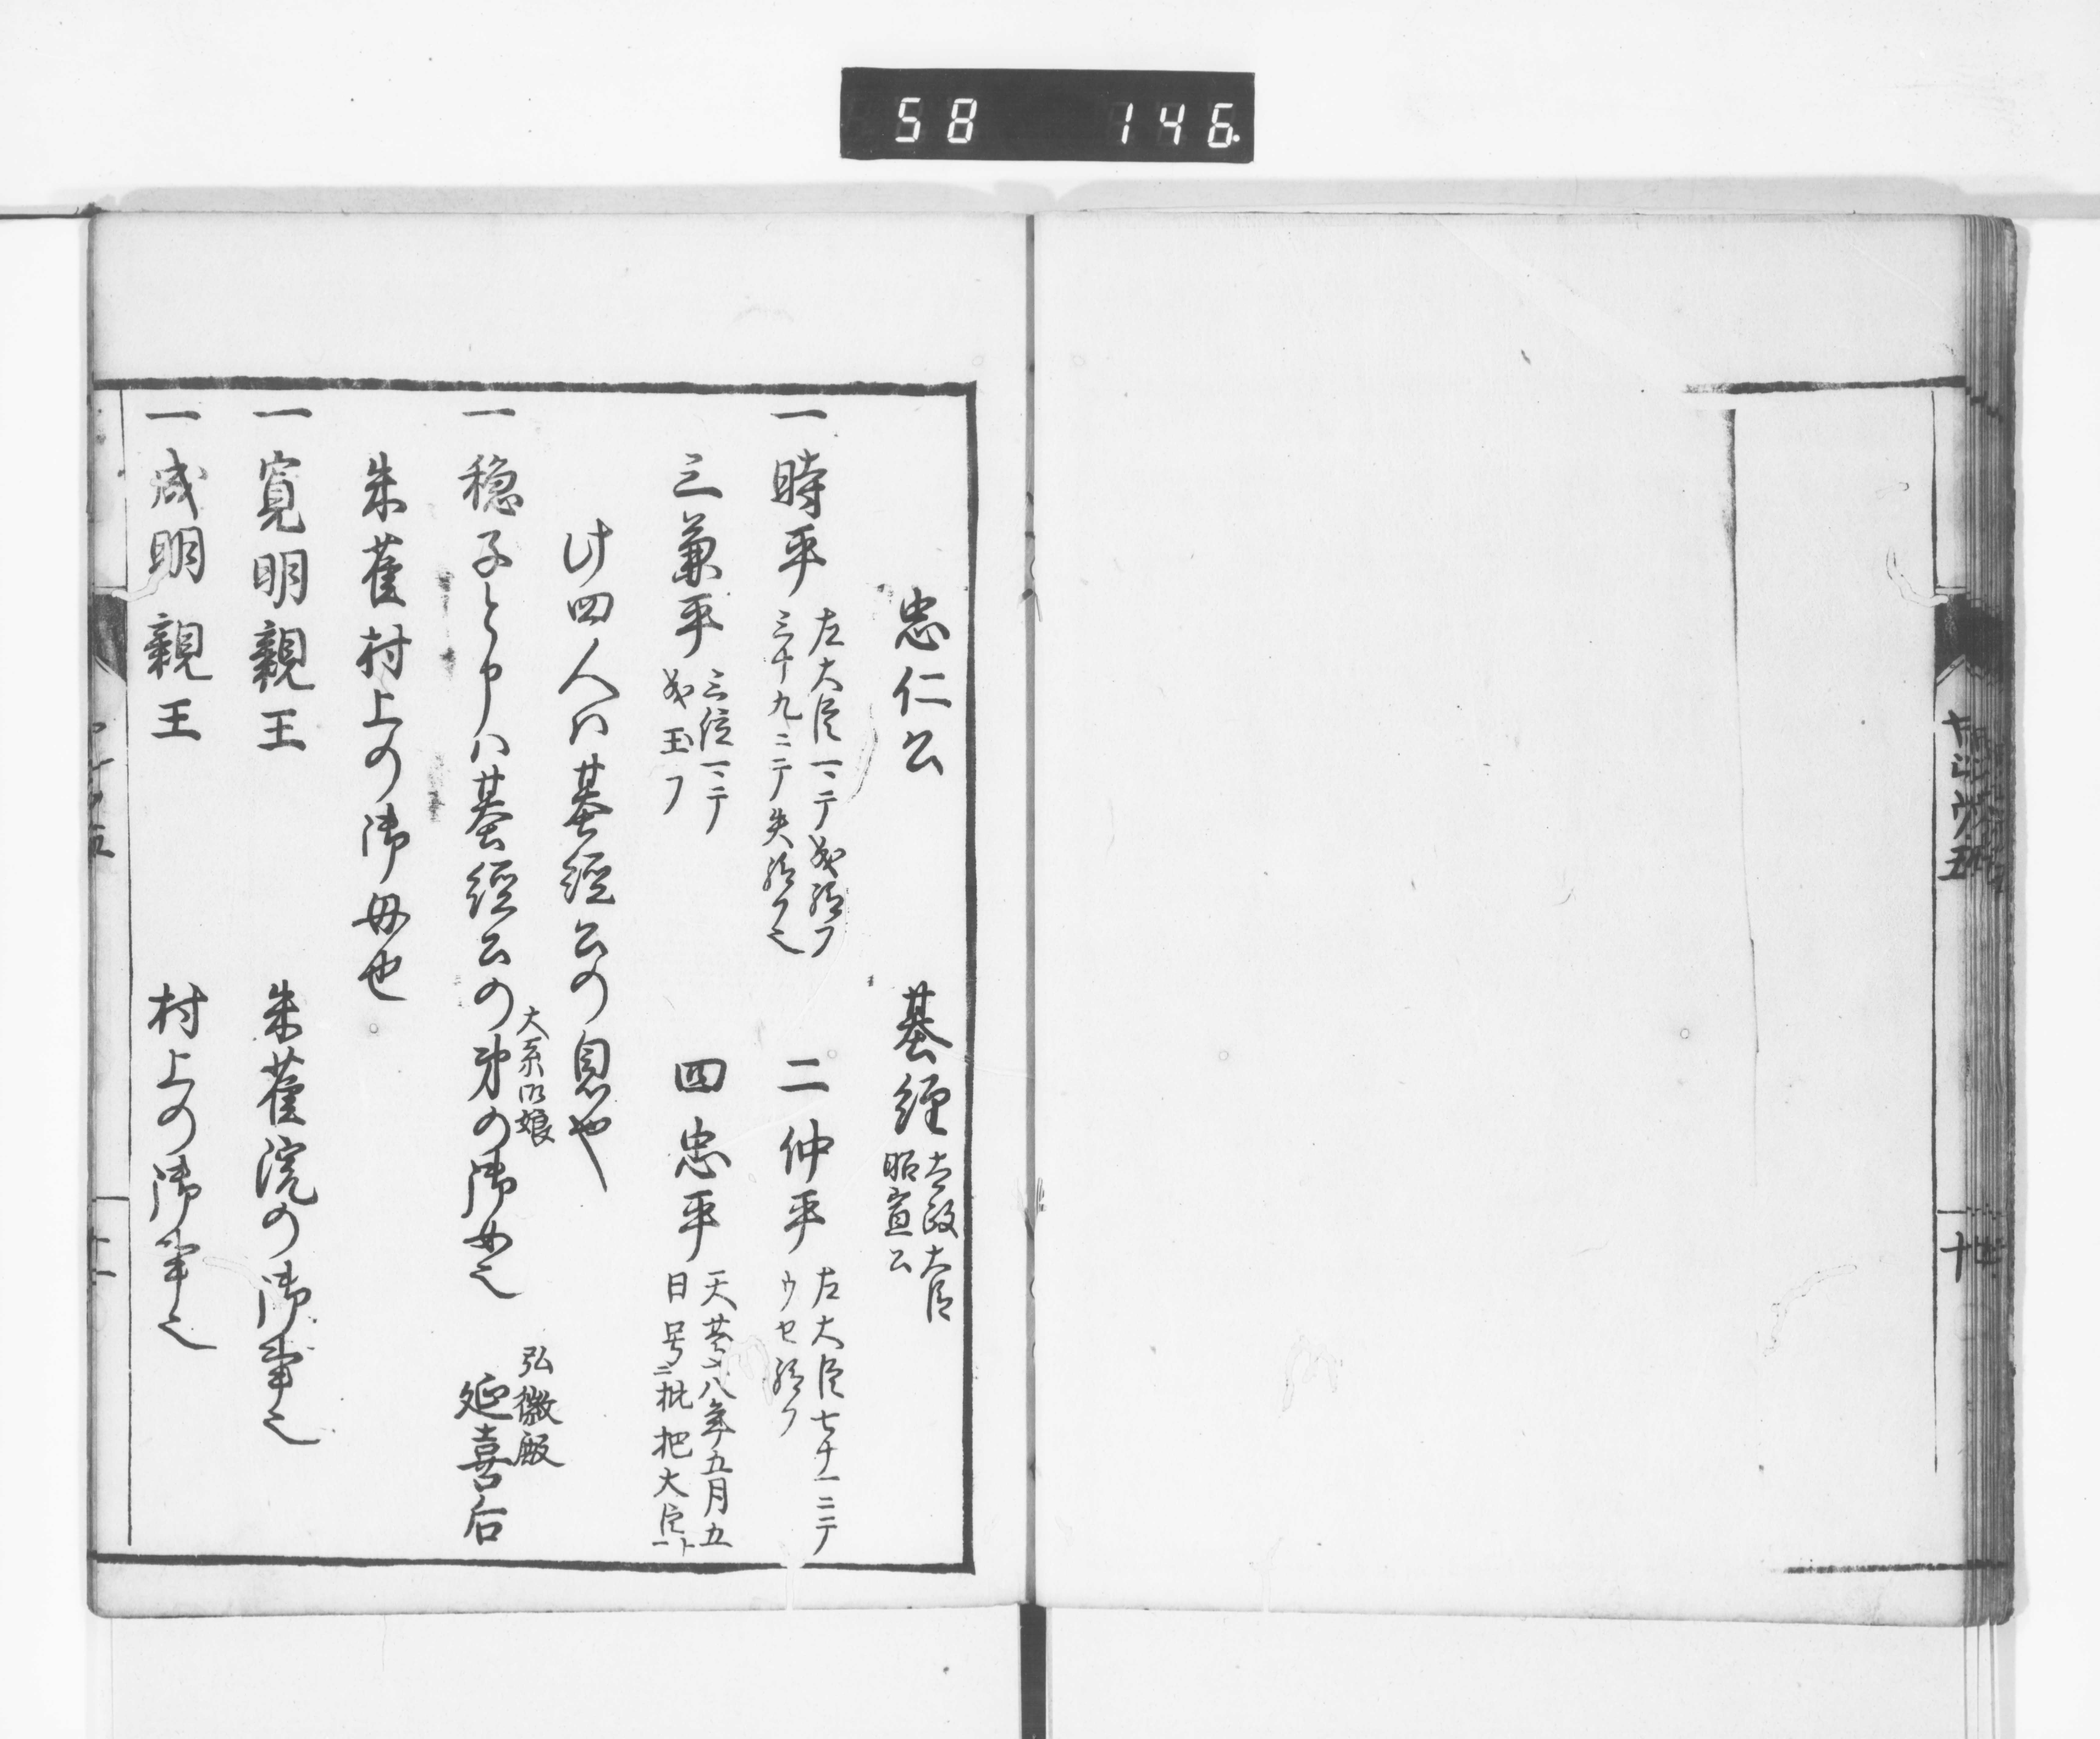 58 146
忠仁公 基經 太政大臣
昭宣公
一時平 左大臣ニテ成給フ
三十九ニテ失給フ也
二仲平 左大臣七十一ニテ
ウセ給フ
三兼平 三位ニテ
成玉フ
四忠平 天暦八年五月五
日号ニ枇把大臣ト一
此四人ハ基經公の息也
一穏子と申ハ基經公の弟の御女也 延喜后
大系図娘
弘徽殿
朱雀村上の御母也
一寛明親王 朱雀院の御事也
一成明親王 村上の御事也